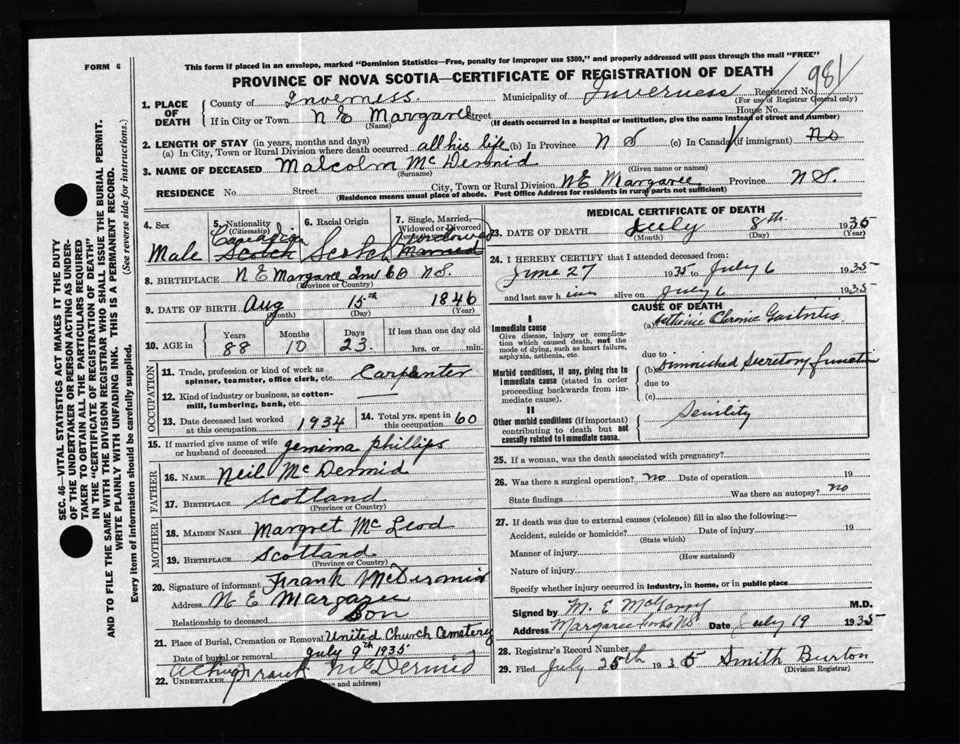 FORM 6
This form if placed in an envelope, marked "Dominion Statistics—Free, penalty for improper use $300," and properly addressed will pass through the mail "FREE"
PROVINCE OF NOVA SCOTIA—CERTIFICATE OF REGISTRATION OF DEATH
981
1. PLACE OF DEATH
County of Inverness Municipality of Inverness Registered No.
(For use of Registrar General only)
If in City or Town N E Margaree Street House No.
(Name) (If death occurred in a hospital or institution, give the name instead of street and number)
2. LENGTH OF STAY (in years, months and days)
(a) In City, Town or Rural Division where death occurred all his life (b) In Province N S (c) In Canada (if immigrant) No
3. NAME OF DECEASED Malcolm Mc Dermid
(Surname) (Given name or names)
RESIDENCE No. Street City, Town or Rural Division NE Margaree Province N S.
(Residence means usual place of abode. Post Office Address for residents in rural parts not sufficient)
4. Sex
Male
5. Nationality
(Citizenship)
Canadian
Scotch
6. Racial Origin
Scotch
7. Single, Married,
Widowed or Divorced
Widowed
Married
8. BIRTHPLACE N E Margaree Inv Co N S.
(Province or Country)
9. DATE OF BIRTH Aug 15th 1846
(Month) (Day) (Year)
10. AGE in
Years Months Days If less than one day old
88 10 23 hrs. or min.
OCCUPATION
11. Trade, profession or kind of work as
spinner, teamster, office clerk, etc. Carpenter
12. Kind of industry or business, as cotton-
mill, lumbering, bank, etc. —
13. Date deceased last worked
at this occupation 1934
14. Total yrs. spent in
this occupation 60
15. If married give name of wife
or husband of deceased Jemima Phillips
FATHER
16. NAME Neil Mc Dermid
17. BIRTHPLACE Scotland
(Province or Country)
MOTHER
18. MAIDEN NAME Margret Mc Leod
19. BIRTHPLACE Scotland
(Province or Country)
20. Signature of informant Frank McDermid
Address N E Margaree
Relationship to deceased Son
21. Place of Burial, Cremation or Removal United Church Cemetery
Date of burial or removal July 9th 1935
22. UNDERTAKER Frank McDermid
(Name and address)
MEDICAL CERTIFICATE OF DEATH
23. DATE OF DEATH July 8th 1935
(Month) (Day) (Year)
24. I HEREBY CERTIFY that I attended deceased from:
June 27 1935 to July 6 1935
and last saw him alive on July 6 1935
CAUSE OF DEATH
I
Immediate cause
Give disease, injury or complica-
tion which caused death, not the
mode of dying, such as heart failure,
asphyxia, asthenia, etc.
(a) Chronic Gastritis
due to
Morbid conditions, if any, giving rise to
immediate cause (stated in order
proceeding backwards from im-
mediate cause).
(b) Diminished Secretory function
due to
(c)
II
Other morbid conditions (if important)
contributing to death but not
causally related to immediate cause.
Senility
25. If a woman, was the death associated with pregnancy?
26. Was there a surgical operation? no Date of operation 19
State findings Was there an autopsy? no
27. If death was due to external causes (violence) fill in also the following:—
Accident, suicide or homicide? Date of injury 19
(State which)
Manner of injury
(How sustained)
Nature of injury
Specify whether injury occurred in industry, in home, or in public place
Signed by M. E. M.D.
Address Margaree Forks NS Date July 19 1935
28. Registrar's Record Number
29. Filed July 25th 1935 Smith Burton
(Division Registrar)
SEC. 46—VITAL STATISTICS ACT MAKES IT THE DUTY
OF THE UNDERTAKER OR PERSON ACTING AS UNDER-
TAKER TO OBTAIN ALL THE PARTICULARS REQUIRED
IN THE "CERTIFICATE OF REGISTRATION OF DEATH"
AND TO FILE THE SAME WITH THE DIVISION REGISTRAR WHO SHALL ISSUE THE BURIAL PERMIT.
WRITE PLAINLY WITH UNFADING INK. THIS IS A PERMANENT RECORD.
Every item of information should be carefully supplied. (See reverse side for instructions.)